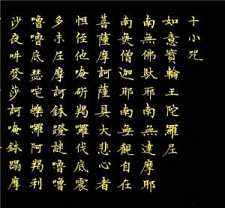 十小咒
如意寶輪王陀羅尼
南無佛馱耶南無達摩耶
南無僧伽耶南無觀自在
菩薩摩訶薩具大悲心者
怛侄他唵斫羯囉伐底震
多末尼摩訶鉢蹬謎嚕嚕
嚕嚕底瑟吒爍囉阿羯利
沙夜吽發莎訶唵鉢蹋摩